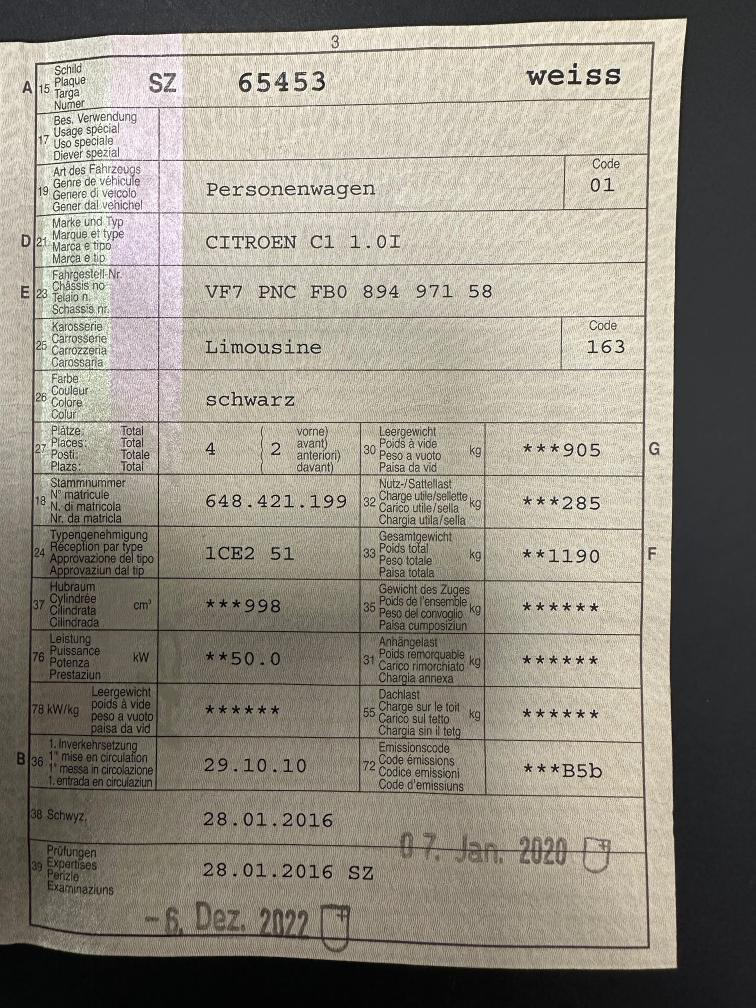 3
A 15 Schild
Plaque
Targa
Numer
SZ 65453 weiss
17 Bes. Verwendung
Usage spécial
Uso speciale
Diever spezial
19 Art des Fahrzeugs
Genre de véhicule
Genere di veicolo
Gener dal vehichel
Personenwagen
Code
01
D 21 Marke und Typ
Marque et type
Marca e tipo
Marca e tip
CITROEN C1 1.0I
E 23 Fahrgestell-Nr.
Châssis no
Telaio n.
Schassis nr.
VF7 PNC FB0 894 971 58
25 Karosserie
Carrosserie
Carrozzeria
Carossaria
Limousine
Code
163
26 Farbe
Couleur
Colore
Colur
schwarz
27 Plätze: Total
Places: Total
Posti: Totale
Plazs: Total
4 ( 2 vorne)
avant)
anteriori)
davant)
30 Leergewicht
Poids à vide
Peso a vuoto
Paisa da vid
kg ***905 G
18 Stammnummer
N° matricule
N. di matricola
Nr. da matricla
648.421.199
32 Nutz-/Sattellast
Charge utile/sellette
Carico utile/sella
Chargia utila/sella
kg ***285
24 Typengenehmigung
Réception par type
Approvazione del tipo
Approvaziun dal tip
1CE2 51
33 Gesamtgewicht
Poids total
Peso totale
Paisa totala
kg **1190 F
37 Hubraum
Cylindrée
Cilindrata
Cilindrada
cm³ ***998
35 Gewicht des Zuges
Poids de l'ensemble
Peso del convoglio
Paisa cumposiziun
kg ******
76 Leistung
Puissance
Potenza
Prestaziun
kW **50.0
31 Anhängelast
Poids remorquable
Carico rimorchiato
Chargia annexa
kg ******
78 kW/kg Leergewicht
poids à vide
peso a vuoto
paisa da vid
******
55 Dachlast
Charge sur le toit
Carico sul tetto
Chargia sin il tetg
kg ******
B 36 1. Inverkehrsetzung
1re mise en circulation
1a messa in circolazione
1. entrada en circulaziun
29.10.10
72 Emissionscode
Code émissions
Codice emissioni
Code d'emissiuns
***B5b
38 Schwyz, 28.01.2016
07. Jan. 2020
39 Prüfungen
Expertises
Perizie
Examinaziuns
28.01.2016 SZ
-6. Dez. 2022